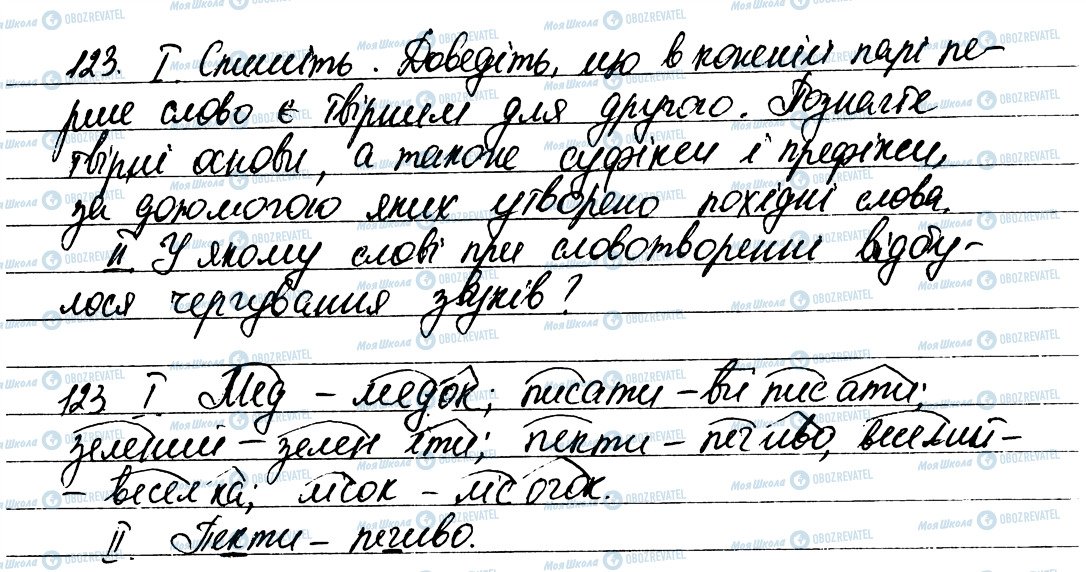 123. I. Спишіть. Доведіть, що в кожній парі пе-
рше слово є твірним для другого. Позначте
твірні основи, а також суфікси і префікси,
за допомогою яких утворено похідні слова.
II. У якому слові при словотворенні відбу-
лося чергування звуків?
123 I. Мед - медок; писати - виписати;
зелений - зеленіти; пекти - печиво, веселий -
- веселка; лісок - лісочок.
II. Пекти - печиво.